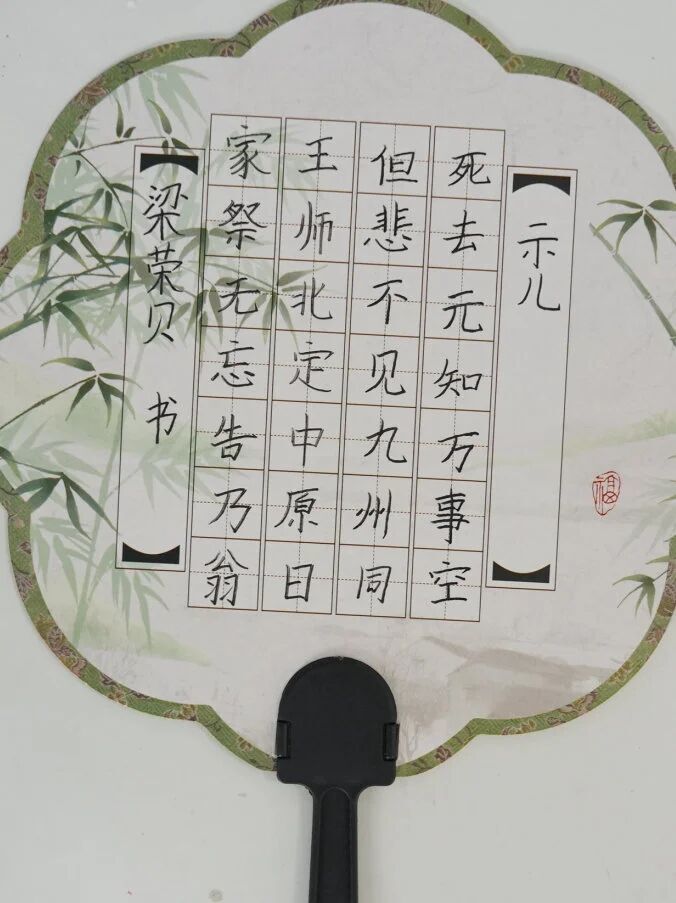 示儿
死去元知万事空
但悲不见九州同
王师北定中原日
家祭无忘告乃翁
梁荣贝 书
福